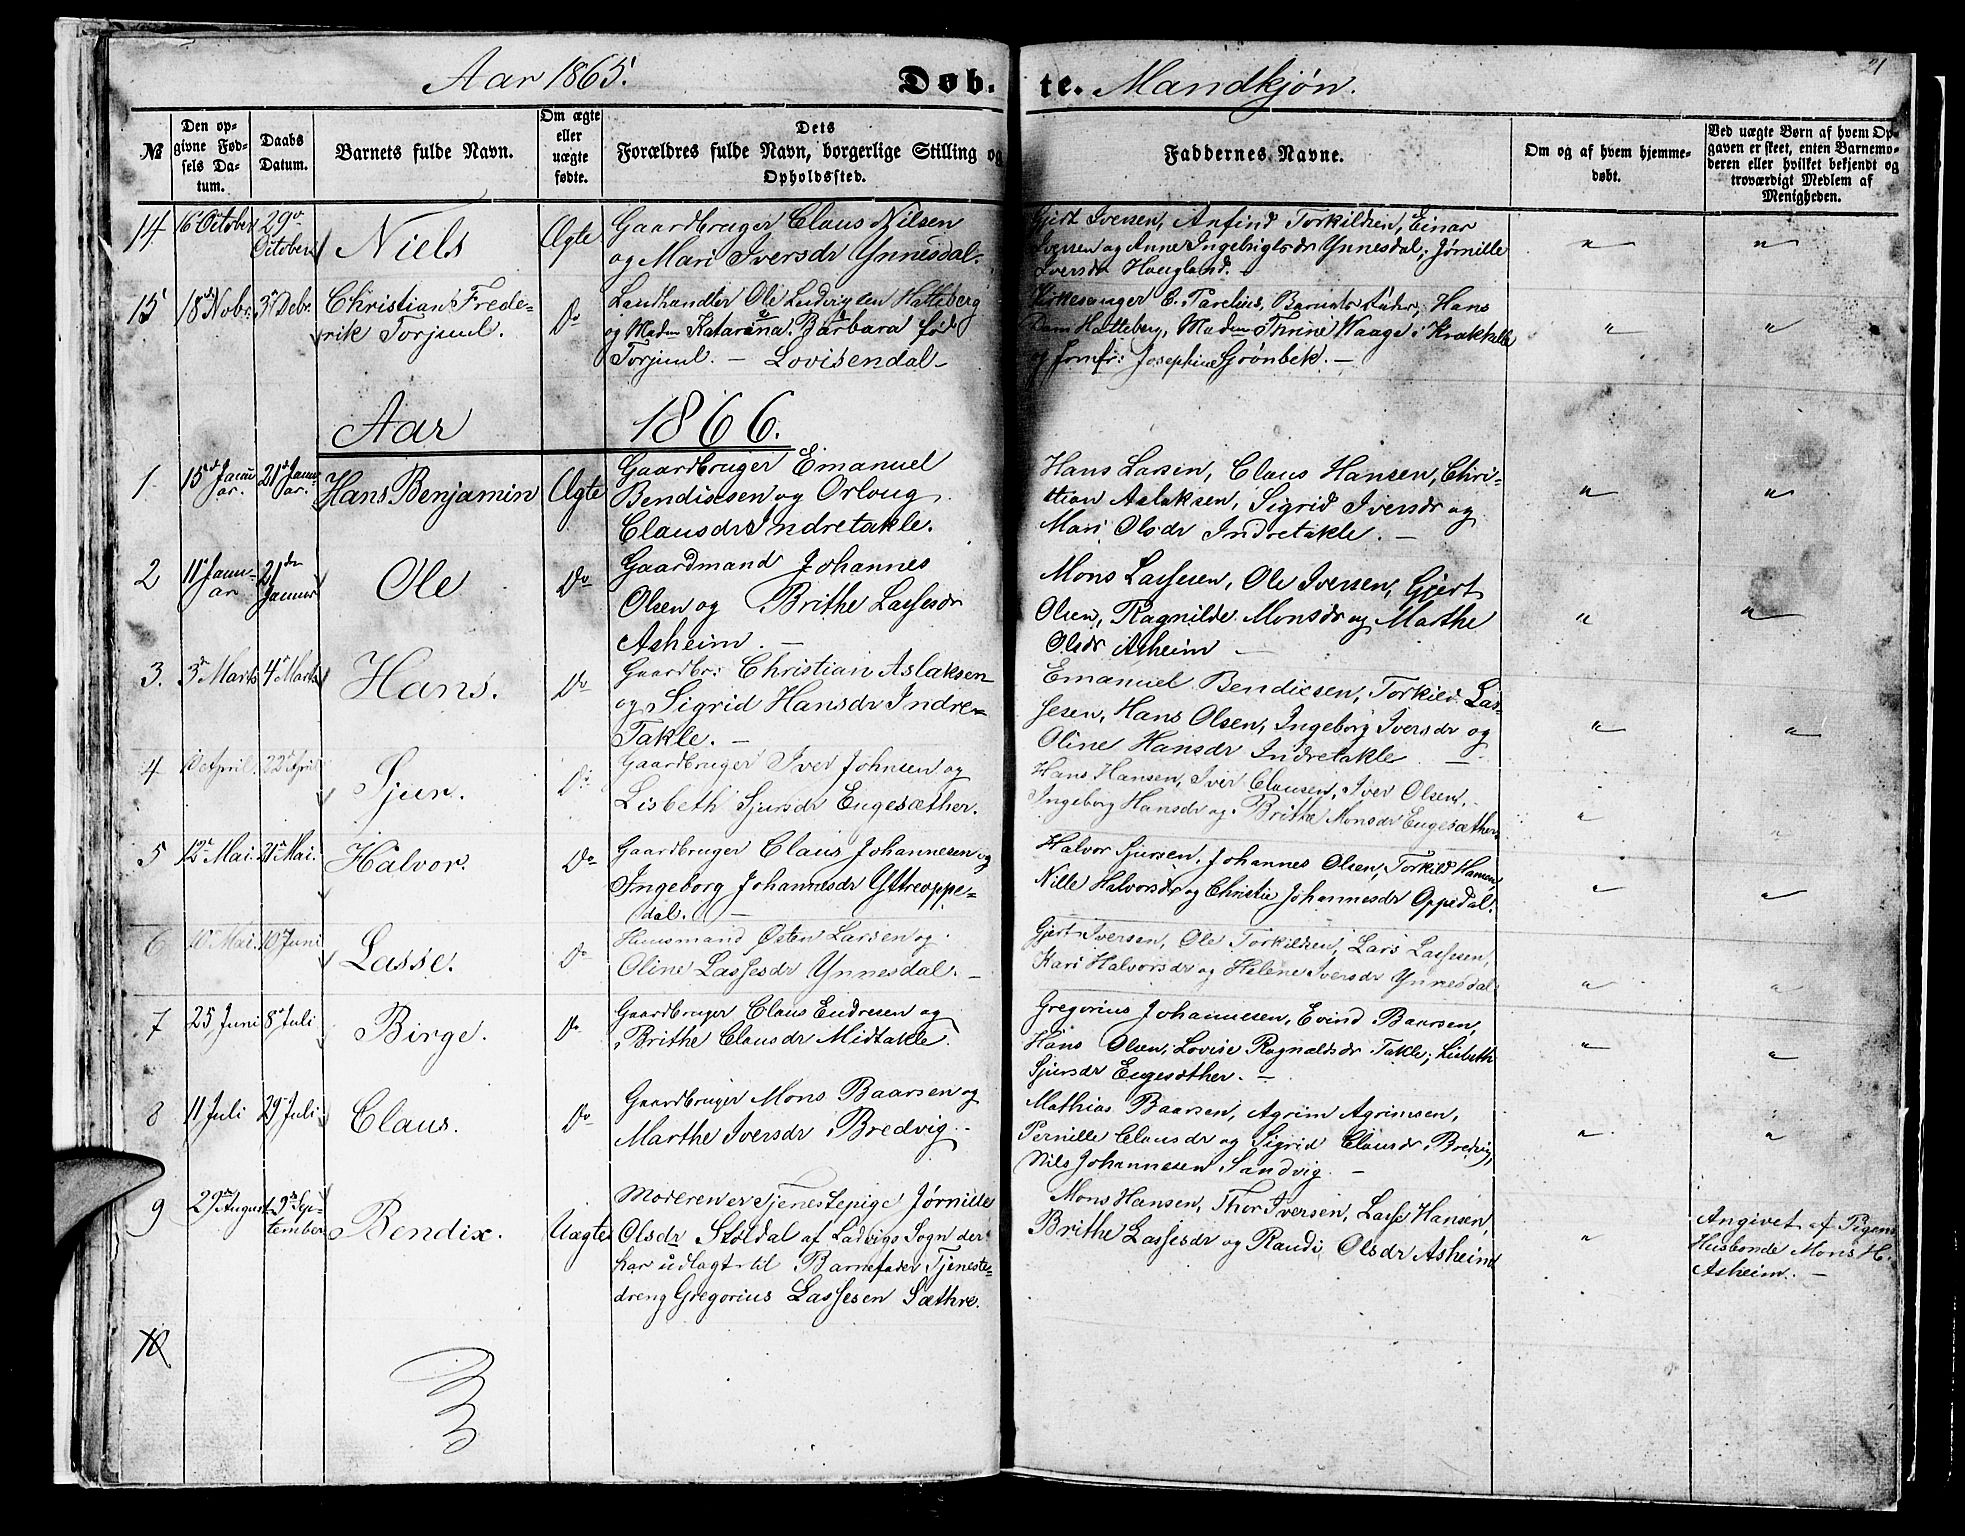 Aar 1865.
Døb. te. Mandkjøn.
21
№
Den op-
givne Fød-
sels Da-
tum.
Daabs
Datum.
Barnets fulde Navn.
Om ægte
eller
uægte
fødte.
Dets
Forældres fulde Navn, borgerlige Stilling og
Opholdssted.
Faddernes Navne.
Om og af hvem hjemme-
døbt.
Ved uægte Børn af hvem Op-
gaven er skeet, enten Barnemo-
deren eller hvilket bekjendt og
troværdigt Medlem af
Menigheden.
14. 16 October 29
October
Niels
Ægte
Gaardbruger Claus Nilsen
og Mari Iversdr Ynnesdal.
Gjert Iversen, Anfind Torkildsen, Einar
Iversen og Anne Ingebrigtsdr Ynnesdal; Jørnille
Iversdr Haugland.
15 18 Nobr. 3 Debr.
Christian Frede-
rik Torjuul.
Do
Landhandler Ole Ludvigsen Hatleberg
og Madm Katarina Barbara fød
Torjuul. — Lovisendal
Kirkesanger E. Parelius, Barnets Fader, Hans
Dam Hatleberg, Madm Thrine Waage i Krakhelle
og Jomfr: Josephine Grønbek. —
Aar 1866.
1. 15 Janu-
ar. 21 Janu-
ar.
Hans Benjamin
Ægte
Gaardbruger Emanuel
Bendixsen og Orloug
Clausdr Indretakle.
Hans Larsen, Claus Hansen, Chri-
stian Aslaksen, Sigrid Iversdr og
Mari Olsdr Indretakle. —
2 11 Janu-
ar 21
Januar
Ole
Do
Gaardmand Johannes
Olsen og Brithe Lassesdr
Asheim —
Mons Lassesen, Ole Iversen, Gjert
Olsen, Ragnilde Monsdr og Marthe
Olsdr Asheim —
3. 3 Marts 4 Marts
Hans.
Do
Gaardbr: Christian Aslaksen
og Sigrid Hansdr Indre-
Takle. —
Emanuel Bendixsen, Torkild Las-
sesen, Hans Olsen, Ingeborg Iversdr og
Oline Hansdr Indretakle —
4 April. 22 April
Sjur.
Do
Gaardbruger Iver Johnsen og
Lisbeth Sjursdr Engesæther.
Hans Hansen, Iver Clausen, Iver Olsen,
Ingeborg Hansdr og Brithe Monsdr Engesæther
5 12 Mai. 21 Mai.
Halvor.
Do
Gaardbruger Claus Johannesen og
Ingeborg Johannesdr Yttreoppe-
dal. —
Halvor Sjursen, Johannes Olsen, Torkild Hansen,
Nille Halvorsdr og Christie Johannesdr Oppedal.
6 10 Mai. 10 Juni
Lasse.
Do
Huusmand Østen Larsen og
Oline Lassesdr Ynnesdal. —
Gjert Iversen, Ole Torkildsen, Lars Lassesen,
Kari Halvorsdr og Helene Iversdr Ynnesdal
7 25 Juni 8 Juli
Birge.
Do
Gaardbruger Claus Endresen og
Brithe Clausdr Midtakle.
Gregorius Johannesen, Evind Baarsen,
Hans Olsen, Lovise Ragnaldsdr Takle; Lisbeth
Sjursdr Engesæther. —
8 11 Juli 29 Juli
Claus.
Do
Gaardbruger Mons Baarsen og
Marthe Iversdr Bredvig. —
Mathias Baarsen, Agrim Agrimsen,
Pernille Clausdr og Sigrid Clausdr Bredvig,
Nils Johannesen Sandvig. —
9 29 August 23 Sep-
tember
Bendix.
Uægte
Moderen er Tjenestepige Jørnille
Olsdr Stoldal af Ladvigs Sogn der
har udlagt til Barnefader Tjeneste-
dreng Gregorius Lassesen Sæthre.
Mons Hansen, Thor Iversen, Lasse Hansen,
Brithe Lassesdr og Randi Olsdr Asheim
Angivet af Pigens
Husbonde Mons H.
Asheim. —
10